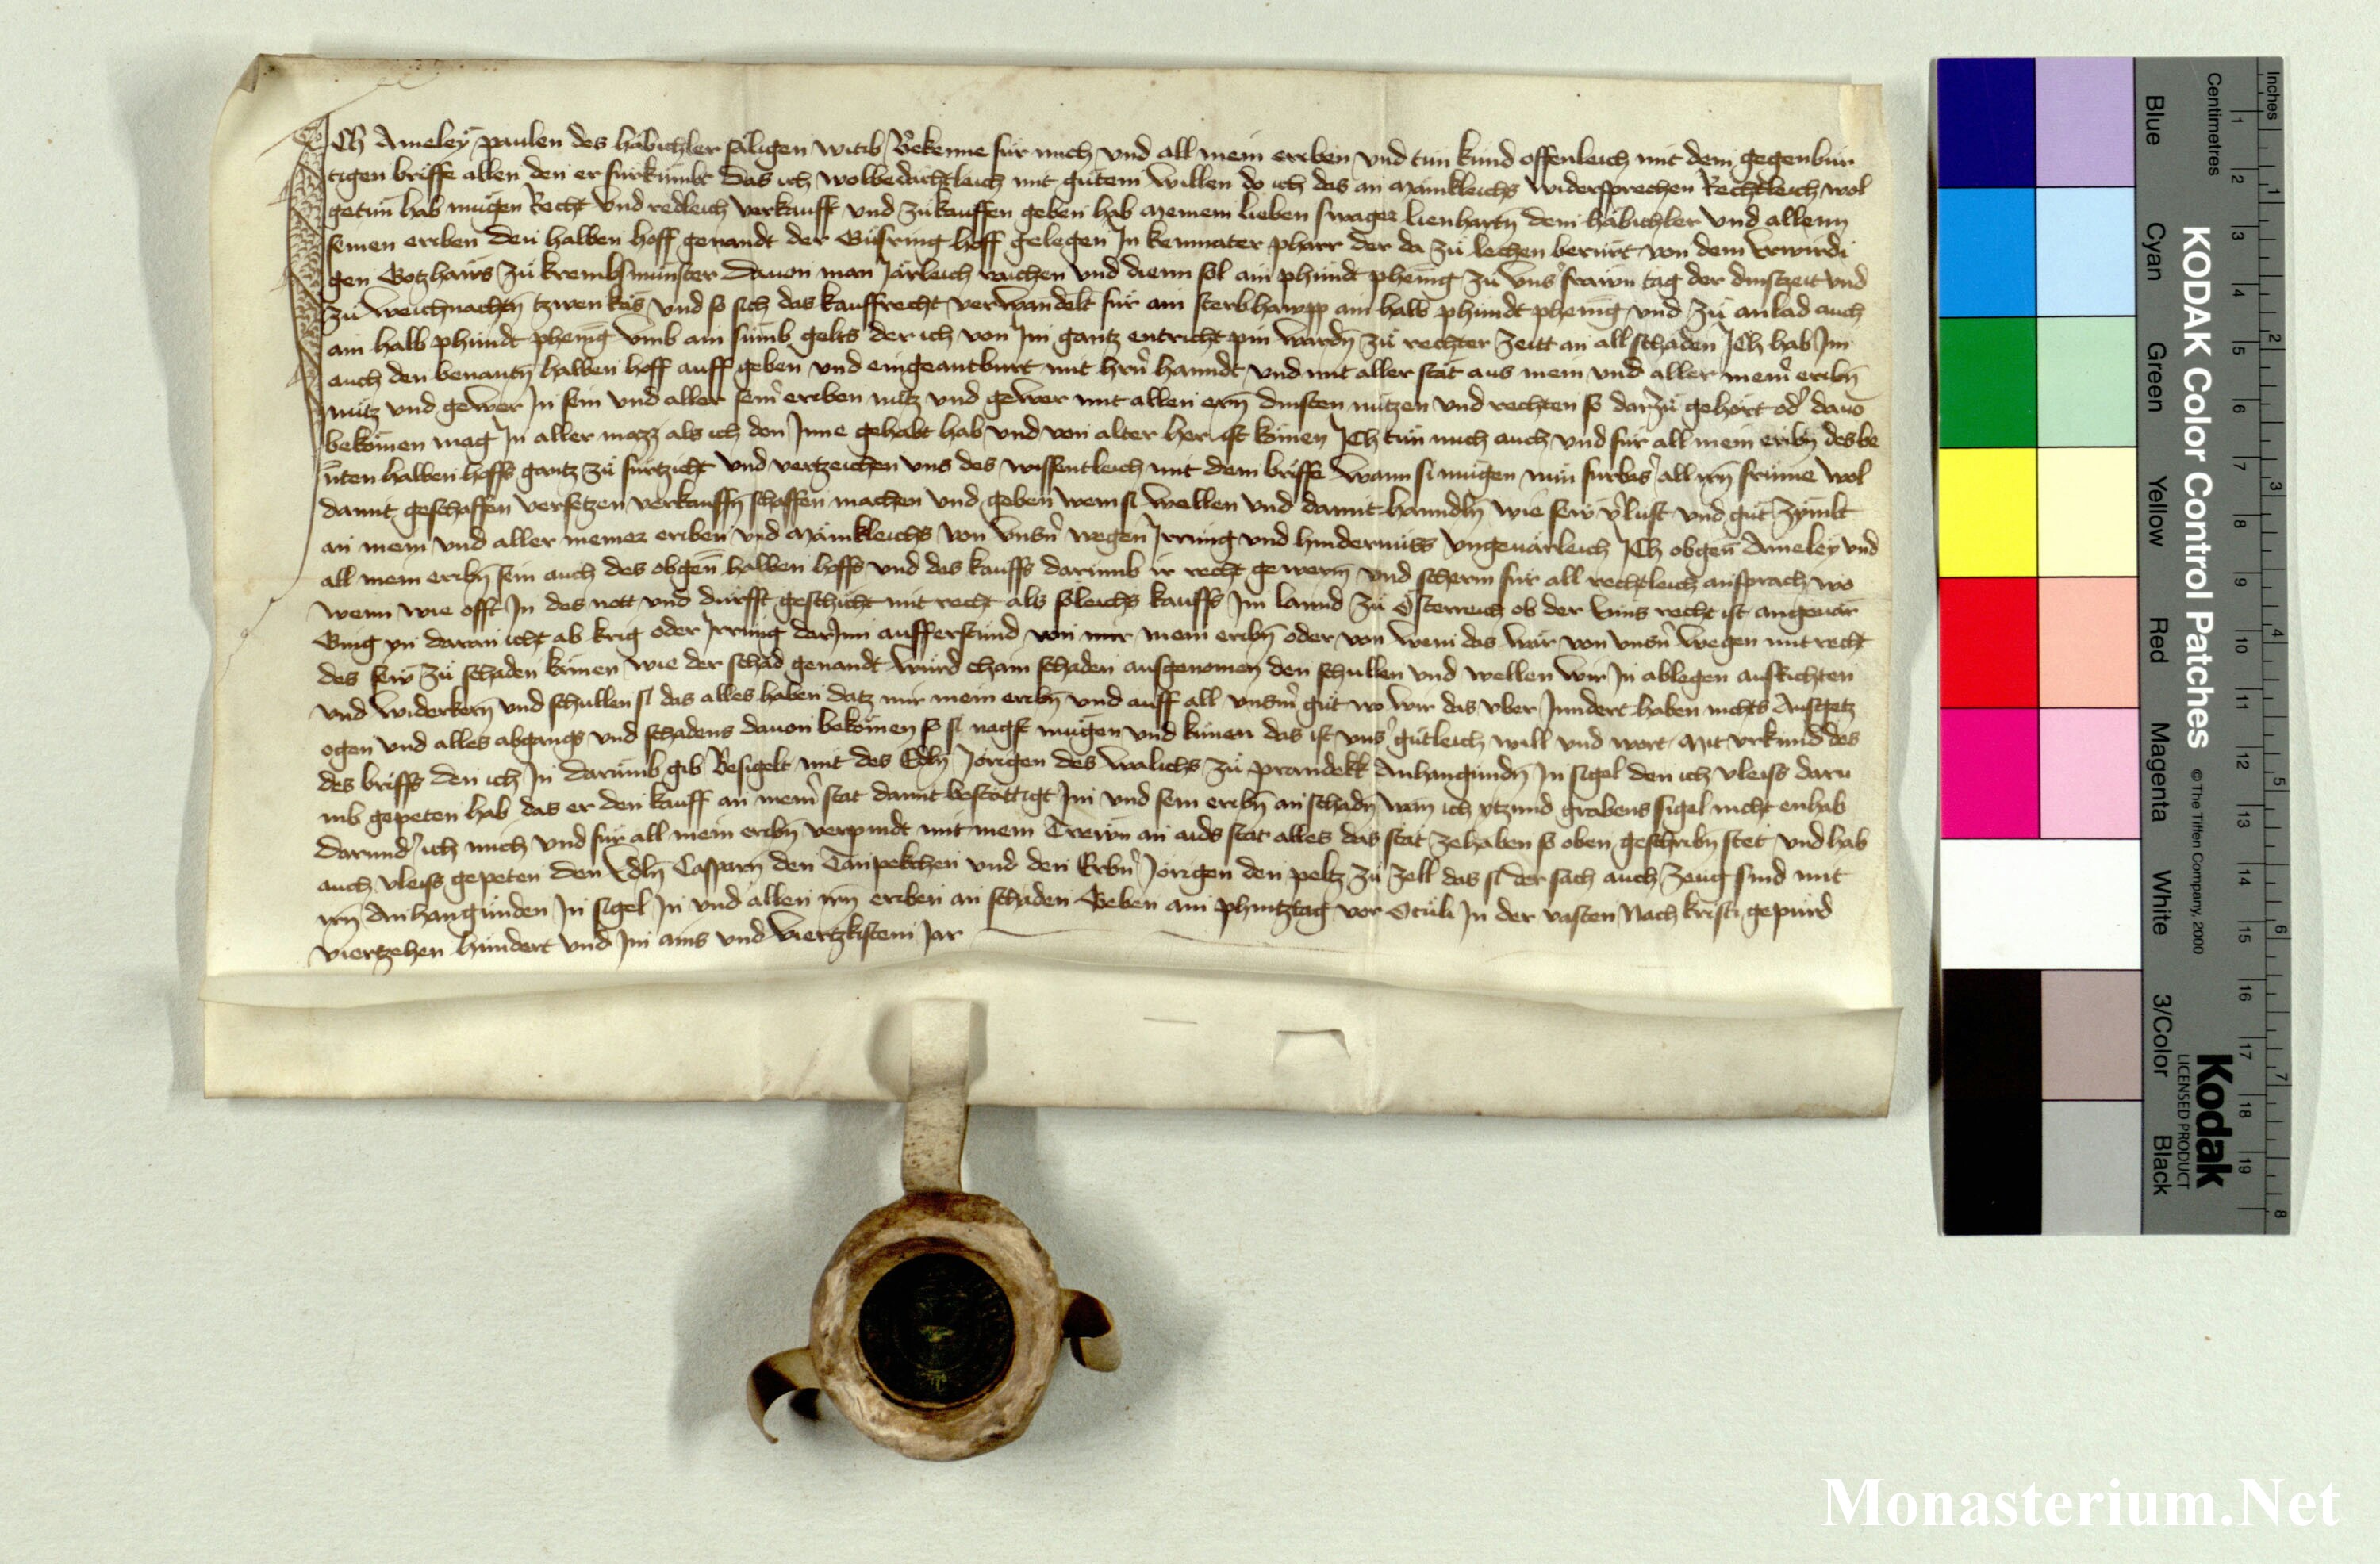 Ich Ameley paulen des habichler säligen witib Bekenne für mich und all mein eriben und tun kund offenleich mit dem gegenbür
tigen briffe allen den er fürkümbt Das ich wolbedächtleich mit gutem willen do ich das an mänikleichs widersprechen Rechtleich wol
getun hab mügen Recht und redleich verkaufft und zukauffen geben hab meinem lieben swager lienhartn̄ dem häbichler und allenn
seinen eriben den halben hoff genandt der hoff gelegen In kemnater pharr der da zu lechen berürt von dem Erwirdi
gen Gotzhaws zu krembsmünster dauon man Järleich raichen und dienn sol ain phundt phenīg zu unsˀ frawn tag der dinstzeit und
zu weichnachtn̄ tzwen käs und so sich das kauffrecht verwandelt für ain sterbhawpp ain halb phundt phenīg und zu anlad auch
ain halb phundt phenīg umb ain sumb gelts der ich von Im gantz entricht pin wardn̄ zu rechter zeitt an all schaden Ich hab Im
auch den benantn̄ halben hoff auff geben und eingeantburt mit hrn̄ hanndt und mit aller stät aus mein und aller meinˀ eribn̄
nutz und gewer In sein und aller seinˀ eriben nutz und gewer mit allen ern̄ dinsten nutzen und rechten so darzu gehört odˀ dauō
bekömen mag In aller mazz als ich den Inne gehabt hab und von alter her ist kömen Ich tun mich auch und für all mein eribn̄ des be
nten halben hoffs gantz zu fürtzicht und vertzeichen uns des wissentleich mit dem briffe wann si mugen nun furbas all irn̄ frume wol
damit geschaffen versetzen verkauffn̄ schaffen machen und geben wem si wellen und damit hanndln̄ wie sew vˀlust und gut zymbt
an mein und aller meiner eriben und mänikleichs von unsˀn wegen Irrung und hindernüss ungeuärleich Ich obgen̄ Ameley und
all mein eribn̄ sein auch des obgen̄ halben hoffs und des kauffs darumb ir recht gewern̄ und scherm für all rechtleich ansprach wo
wenn wie offt In des nott und durfft geschicht mit recht als soleichs kauffs Im lannd zu Österreich ob der Enns recht ist angeuär
Ging yn daran icht ab krig oder Irrung darInn aufferstund von mir mein eribn̄ oder von wem das wär von unsˀn wegen mit recht
des sew zu schaden kömen wie der schad genandt würd chain schaden ausgenomen den schullen und wellen wir In ablegen ausrichten
und widerkern̄ und schullen si das alles haben datz mir mein eribn̄ und auff all unsˀm gut wo wir das uber Inndert haben nichts Ausgetz
ogen und alles abgangs und schadens dauon bekömen so si nagst mugen und künen das ist unsˀ gütleich will und wort Mit urkund des
des briffs den ich In darumb gib Besigelt mit des Edln̄ Jörigen des walichs zu prandekk Anhangundn̄ In sigel den ich vleiss daru
mb gepeten hab das er den kauff an meinˀ stat damit bestöttigt Im und sein eribn̄ an schadn̄ wan ich ytzund grabens sigel nicht enhab
darundˀ ich mich und für all mein eribn̄ verpindt mit mein Trewn an aids stat alles das stät zehaben so oben geschribn̄ stet und hab
auch vleiss gepeten den Edln̄ Casparn̄ den Tanpekchen und den Erbˀn Jörigen den peltz zu zell das si der sach auch zeug sind mit
irn̄ Anhangunden In sigel In und allen irn̄ eriben an schaden Geben am phintztag vor Oculi In der vasten Nach kristi gepurd
viertzehen hundert und Im ains und viertzkistem Jar
KODAK Color Control Patches
© The Tiffen Company, 2000
Kodak
LICENSED PRODUCT
Inches
Centimetres
Blue Cyan Green Yellow Red Magenta White 3/Color Black
1 2 3 4 5 6 7 8 9 10 11 12 13 14 15 16 17 18 19
1 2 3 4 5 6 7 8
Monasterium.Net